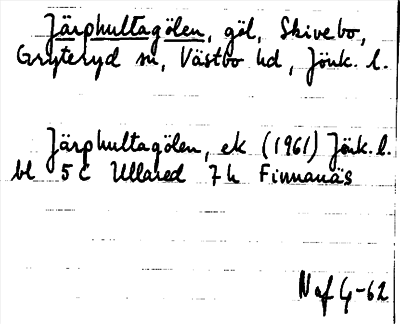 Järphultagölen, göl, Skivebo,
Gryteryd sn, Västbo hd, Jönk. l.
Järphultagölen, ek (1961) Jönk. l.
bl 5 C Ullared 7 h Finnanäs
N af G-62